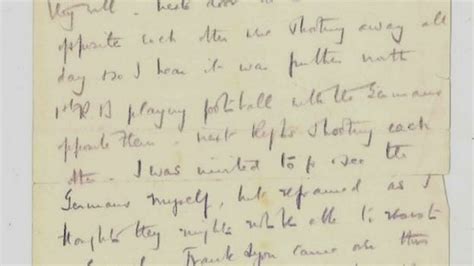 very well - next door
opposite each other were shooting away all
day so I hear it was further north
1st R B playing football with the Germans
opposite them - next Regts shooting each
other - I was invited to go see the
Germans myself, but refrained as I
thought they might not be able to resist
Frank Lyon came